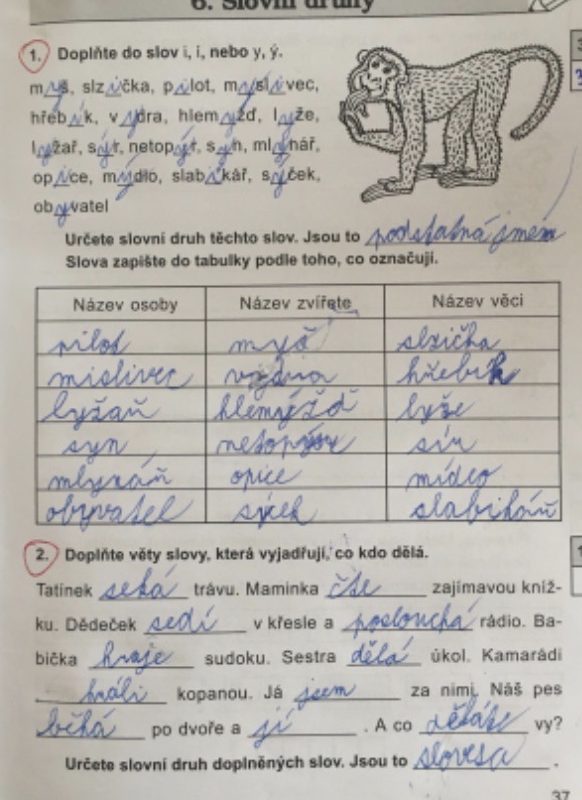 6. Slovní druhy
1. Doplňte do slov i, í, nebo y, ý.
myš, slzička, pilot, myslivec,
hřebík, vydra, hlemýžď, lyže,
lyžař, sýr, netopýr, syn, mlynář,
opice, mýdlo, slabikář, sýček,
obyvatel
Určete slovní druh těchto slov. Jsou to podstatná jména
Slova zapište do tabulky podle toho, co označují.
Název osoby Název zvířete Název věci
pilot myš slzička
mislivec vydra hřebík
lyžař hlemýžď lyže
syn netopýr sír
mlynář opice mídlo
obyvatel sýček slabikář
2. Doplňte věty slovy, která vyjadřují, co kdo dělá.
Tatínek seká trávu. Maminka čte zajímavou kníž-
ku. Dědeček sedí v křesle a poslouchá rádio. Ba-
bička hraje sudoku. Sestra dělá úkol. Kamarádi
hráli kopanou. Já jsem za nimi. Náš pes
běhá po dvoře a jí . A co děláte vy?
Určete slovní druh doplněných slov. Jsou to slovesa .
37